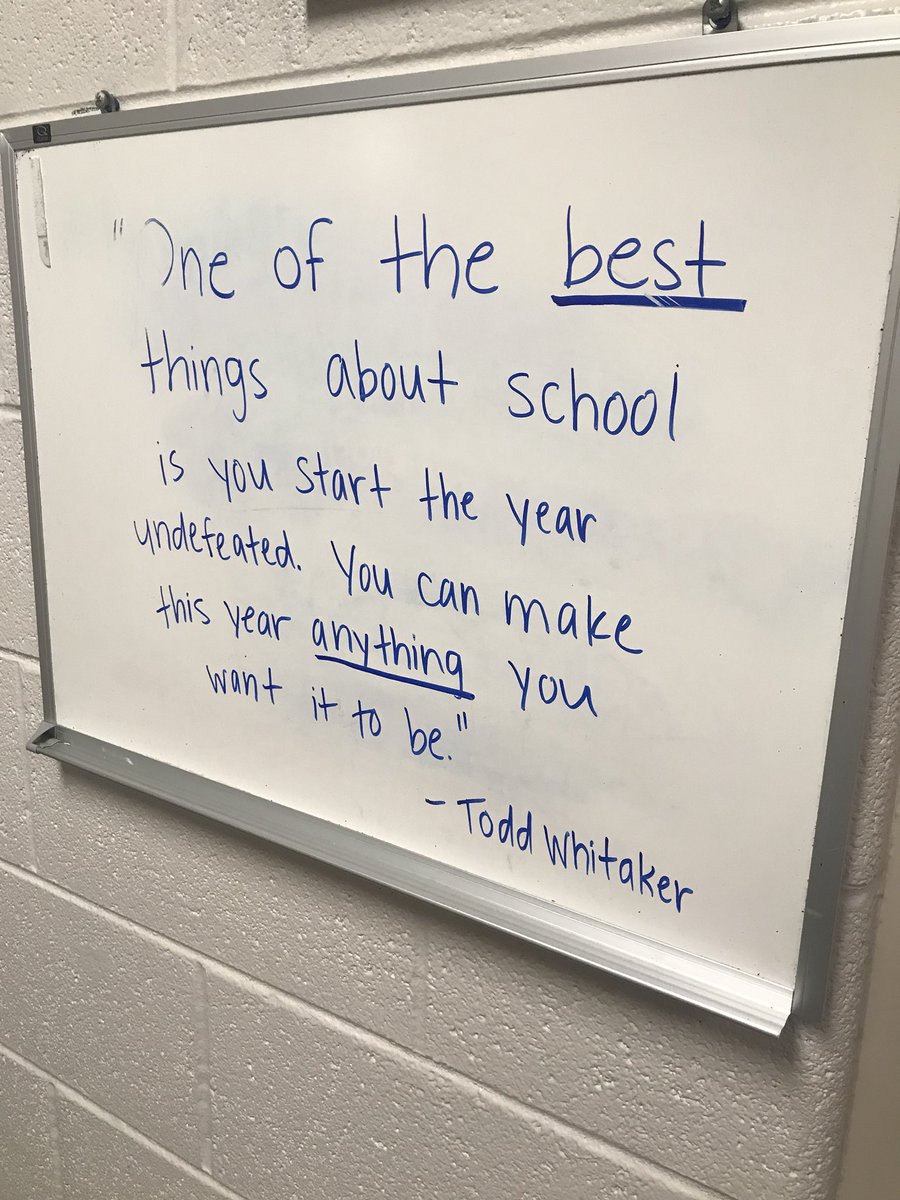 "One of the best
things about school
is you start the year
undefeated. You can make
this year anything you
want it to be."
- Todd Whitaker